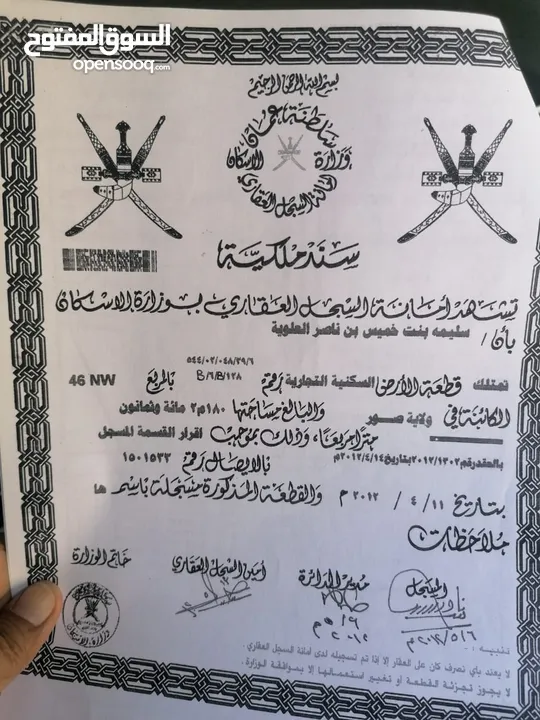 السوق المفتوح
opensooq.com
بسم الله الرحمن الرحيم
سلطنة عمان
وزارة الاسكان
امانة السجل العقاري
سند ملكية
تشهد أمانة السجل العقاري بوزارة الاسكان
بأن / سليمه بنت خميس بن ناصر العلوية
٥٤٤/٠٢/٠٤٨/٢٩/٦
تمتلك قطعة الأرض السكنية التجارية رقم B/٦/B/١٢٨ بالمربع 46 NW
الكائنة في ولاية صور والبالغ مساحتها ١٨٠م٢ مائة وثمانون
مترا مربعا، وذلك بموجب اقرار القسمة المسجل
بالعقد رقم ٢٠١٢/١٣٠٢ بتاريخ ٢٠١٢/٤/١٤م بالايصال رقم ١٥٠١٥٣٣
بتاريخ ١١ / ٤ / ٢٠١٢ م والقطعة المذكورة مسجلة باسم ها
ملاحظات
المسجل
مدير الدائرة
أمين السجل العقاري
خاتم الوزارة
تنبيه : -
لا يعتد بأي تصرف كان على العقار إلا إذا تم تسجيله لدى أمانة السجل العقاري .
لا يجوز تجزئة القطعة أو تغيير استعمالها إلا بموافقة الوزارة .